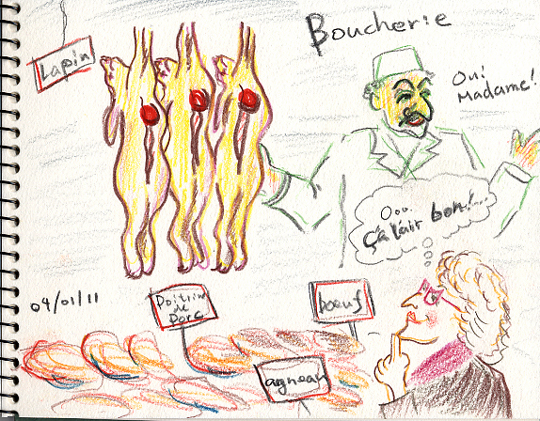 Boucherie
Lapin
Oui
Madame!
Ooo.
Ça l'air bon!...
04/01/11
Poitrine
de
Porc
boeuf
agneau